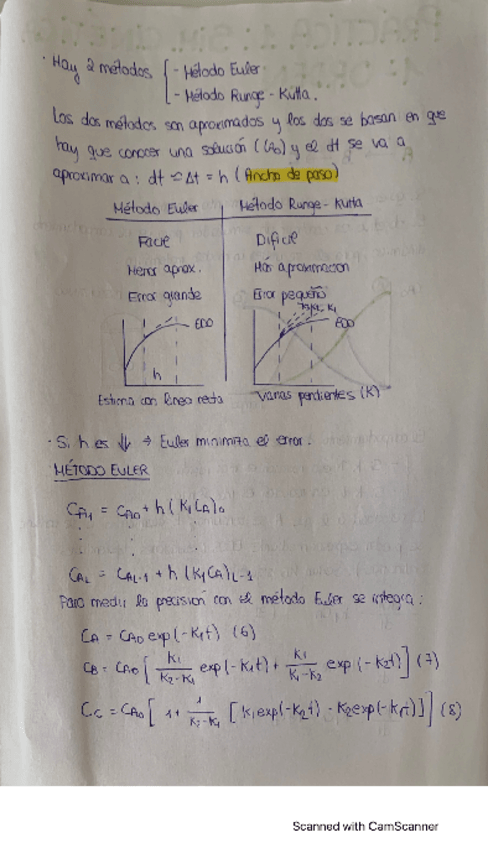 · Hay 2 métodos { - Método Euler
- Método Runge - Kutta.
Los dos métodos son aproximados y los dos se basan en que
hay que conocer una solución (CA0) y el dt se va a
aproximar a : dt ≃ Δt = h (Ancho de paso)
Método Euler | Método Runge - Kutta
Fácil | Difícil
Menor aprox. | Más aproximación
Error grande | Error pequeño
EDO
K1
EDO
h
Estima con línea recta | Varias pendientes (K)
· Si h es ⇓ → Euler minimiza el error.
MÉTODO EULER
CA1 = CA0 + h (K1CA)0
CAL = CAL-1 + h (K1CA)L-1
Para medir la precisión con el método Euler se integra :
CA = CA0 exp(-K1t) (6)
CB = CA0 [ K1/(K2-K1) exp(-K1t) + K1/(K1-K2) exp(-K2t) ] (7)
CC = CA0 [ 1 + 1/(K2-K1) [ K1exp(-K2t) - K2exp(-K1t) ] ] (8)
Scanned with CamScanner